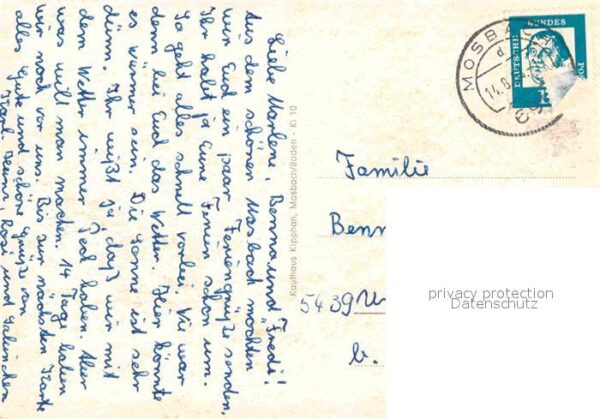 Liebe Marlene, Benna und Fredi!
Aus dem schönen Mosbach möchten
wir Euch ein paar Feriengrüße senden.
Ihr habt ja Eure Ferien schon um.
So geht alles schnell vorbei. Wie war
denn bei Euch das Wetter. Hier könnte
es wärmer sein. Die Sonne ist sehr
dünn. Ihr wißt ja, daß wir mit
dem Wetter immer Pech haben. Aber
was will man machen. 14 Tage haben
wir noch vor uns. Bis zur nächsten Karte
alles Gute und schöne Grüße von
Karl-Heinz, Rosi und
Kaufhaus Kippham, Mosbach/Baden - KI 10
MOSB
14.8.
DEUTSCHE BUNDES PO
Familie
Benn
5439
b.
privacy protection
Datenschutz